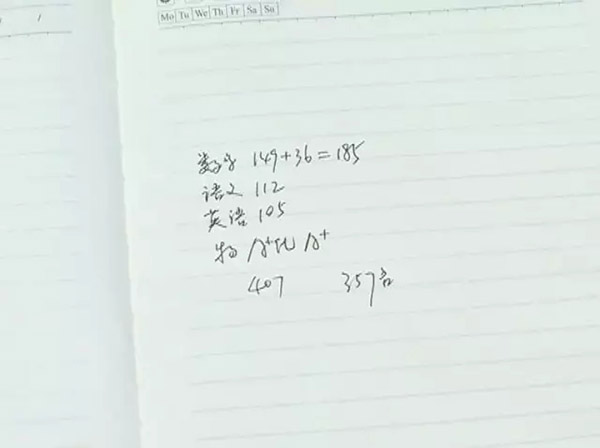 Mo Tu We Th Fr Sa Su
数学 149+36=185
语文 112
英语 105
物 A+化 A+
407 357名